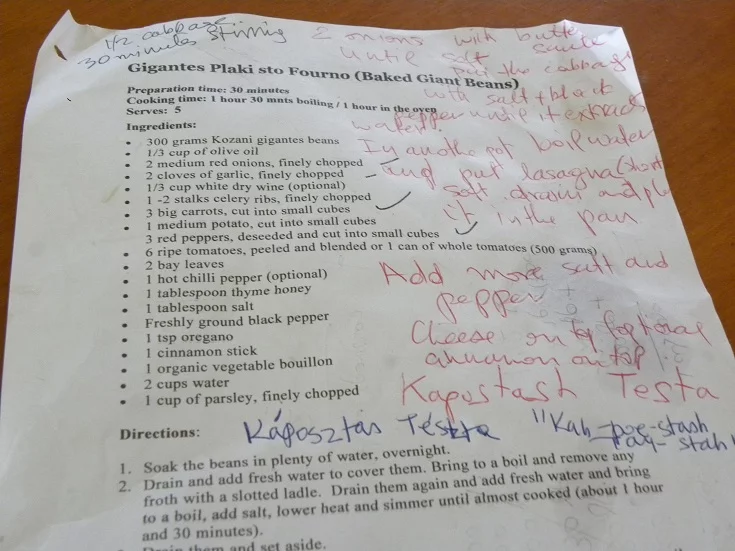 1/2 cabbage
30 minutes stirring
2 onions with butter
until soft
put the cabbage
with salt + black
pepper until it extracts
water.
In another pot boil water
and put lasagna (short
soft. drain and
it in the pan
Add more salt and
pepper
Cheese on top
cinnamon on top
Kapostash Testa
Káposztás Tészta "Kah-poe-stash
Gigantes Plaki sto Fourno (Baked Giant Beans)
Preparation time: 30 minutes
Cooking time: 1 hour 30 mnts boiling / 1 hour in the oven
Serves: 5
Ingredients:
• 300 grams Kozani gigantes beans
• 1/3 cup of olive oil
• 2 medium red onions, finely chopped
• 2 cloves of garlic, finely chopped
• 1/3 cup white dry wine (optional)
• 1 -2 stalks celery ribs, finely chopped
• 3 big carrots, cut into small cubes
• 1 medium potato, cut into small cubes
3 red peppers, deseeded and cut into small cubes
• 6 ripe tomatoes, peeled and blended or 1 can of whole tomatoes (500 grams)
• 2 bay leaves
• 1 hot chilli pepper (optional)
• 1 tablespoon thyme honey
• 1 tablespoon salt
• Freshly ground black pepper
• 1 tsp oregano
• 1 cinnamon stick
• 1 organic vegetable bouillon
• 2 cups water
• 1 cup of parsley, finely chopped
Directions:
1. Soak the beans in plenty of water, overnight.
2. Drain and add fresh water to cover them. Bring to a boil and remove any
froth with a slotted ladle. Drain them again and add fresh water and bring
to a boil, add salt, lower heat and simmer until almost cooked (about 1 hour
and 30 minutes).
Drain them and set aside.